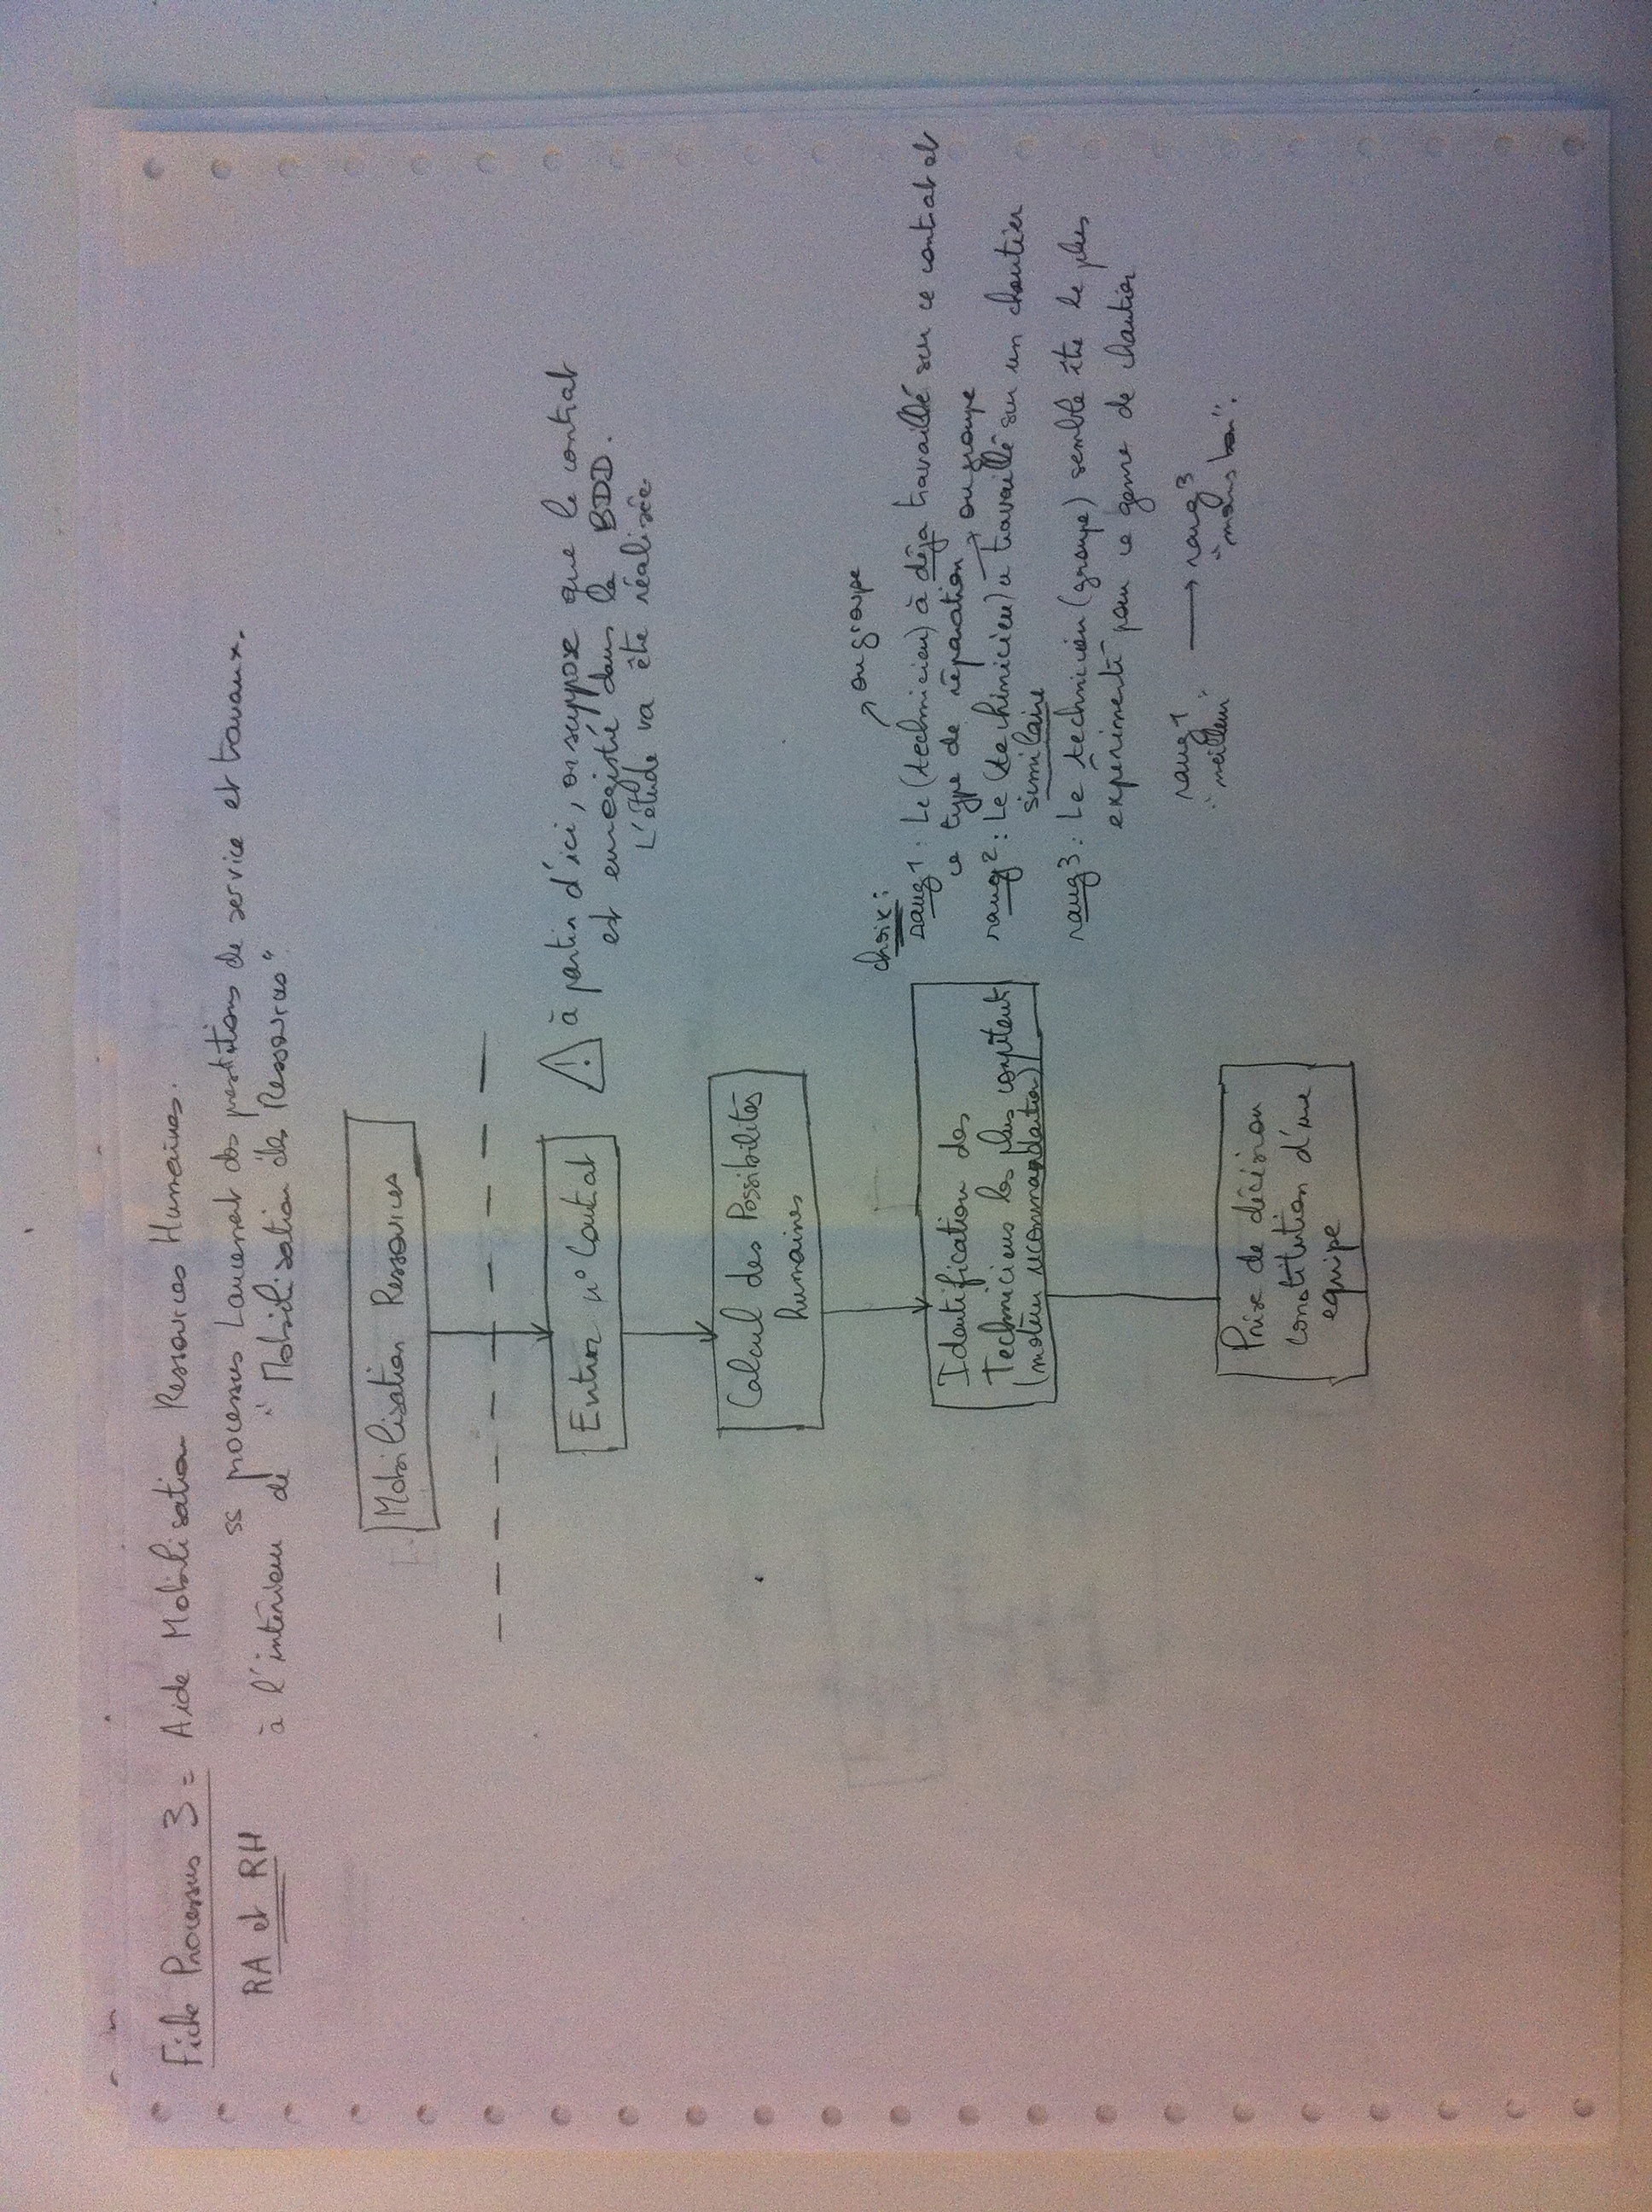 Fiche Processus 3 = Aide Mobilisation Ressources Humaines.
ss processus Lancement des prestations de service et travaux.
RA et RH
à l'intérieur de "Mobilisation des Ressources"
Mobilisation Ressources
Entrer n° Contrat
⚠ à partir d'ici, on suppose que le contrat
est enregistré dans la BDD.
L'étude va être réalisée
Calcul des Possibilités
humaines
Identification des
Techniciens les plus compétents
(moteur recommandation)
choix :
↗ ou groupe
rang 1 : Le (technicien) à déja travaillé sur ce contrat et
ce type de réparation
→ ou groupe
rang 2 : Le (technicien) a travaillé sur un chantier
similaire
rang 3 : Le technicien (groupe) semble être le plus
expérimenté pour ce genre de chantier
rang 1 → rang 3
"meilleur" "moins bon".
Prise de décision
constitution d'une
equipe